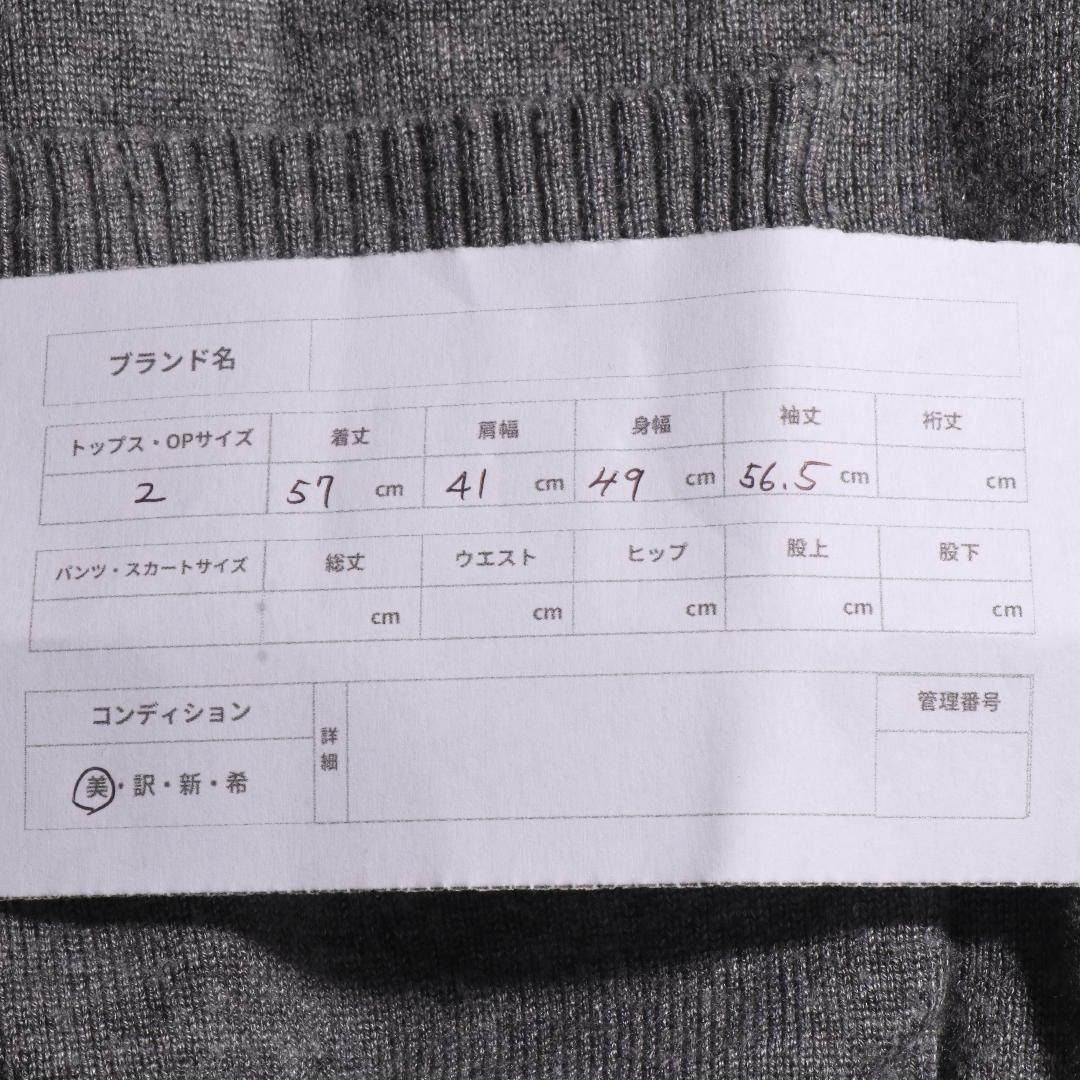 ブランド名
トップス・OPサイズ 着丈 肩幅 身幅 袖丈 裄丈
2 57 cm 41 cm 49 cm 56.5 cm cm
パンツ・スカートサイズ 総丈 ウエスト ヒップ 股上 股下
cm cm cm cm cm
コンディション 詳細 管理番号
美・訳・新・希